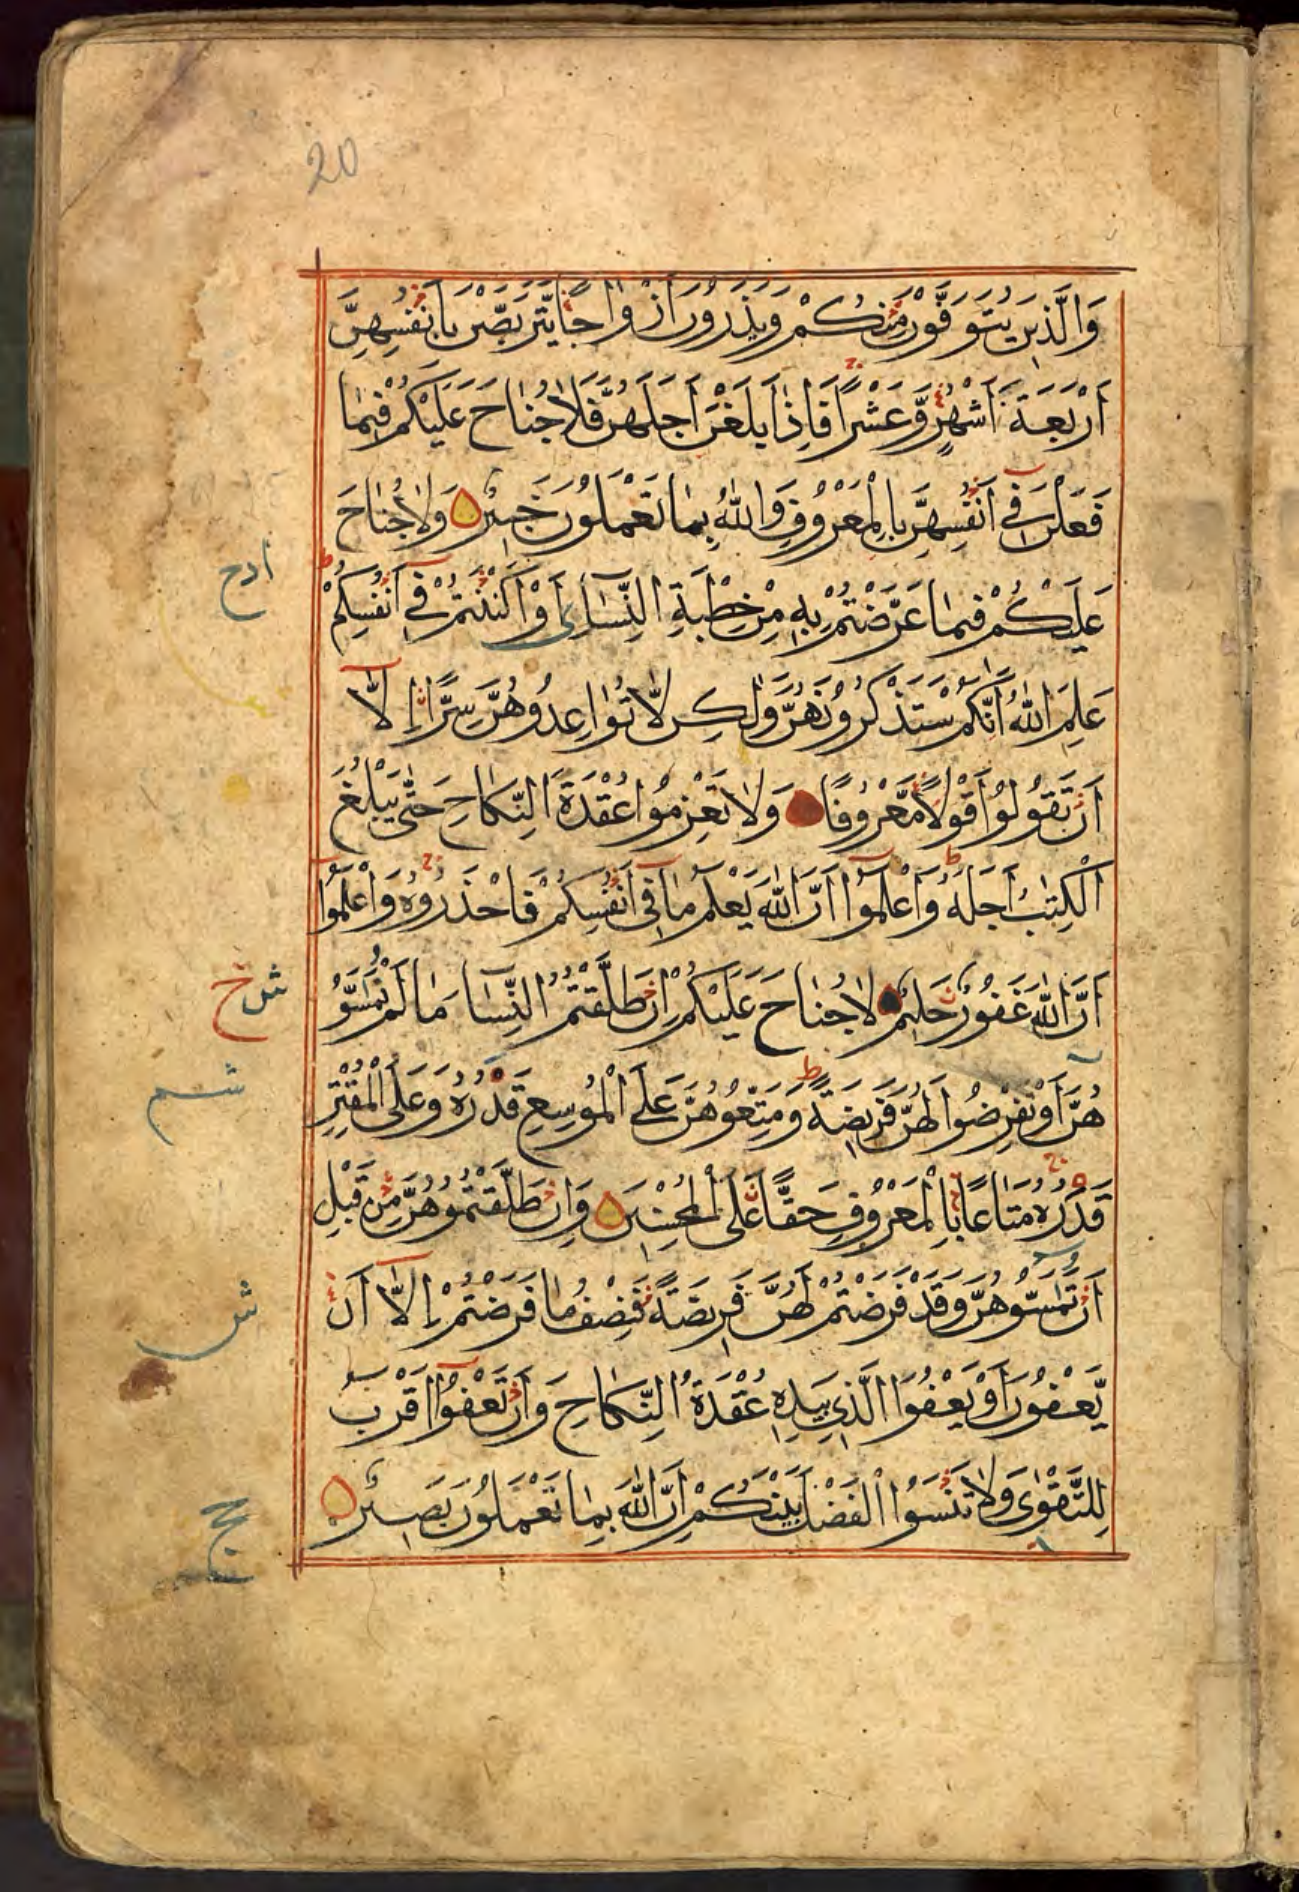 20
وَالَّذِينَ يُتَوَفَّوْنَ مِنْكُمْ وَيَذَرُونَ أَزْوَاجًا يَتَرَبَّصْنَ بِأَنْفُسِهِنَّ
أَرْبَعَةَ أَشْهُرٍ وَّعَشْرًا فَإِذَا بَلَغْنَ أَجَلَهُنَّ فَلَا جُنَاحَ عَلَيْكُمْ فِيمَا
فَعَلْنَ فِي أَنْفُسِهِنَّ بِالْمَعْرُوفِ وَاللّٰهُ بِمَا تَعْمَلُونَ خَبِيرٌ وَلَا جُنَاحَ
ادح
عَلَيْكُمْ فِيمَا عَرَّضْتُمْ بِهِ مِنْ خِطْبَةِ النِّسَآءِ أَوْ أَكْنَنْتُمْ فِي أَنْفُسِكُمْ
عَلِمَ اللّٰهُ أَنَّكُمْ سَتَذْكُرُونَهُنَّ وَلٰكِنْ لَّا تُوَاعِدُوهُنَّ سِرًّا إِلَّا
أَنْ تَقُولُوا قَوْلًا مَّعْرُوفًا وَلَا تَعْزِمُوا عُقْدَةَ النِّكَاحِ حَتّٰى يَبْلُغَ
الْكِتٰبُ أَجَلَهُ وَاعْلَمُوا أَنَّ اللّٰهَ يَعْلَمُ مَا فِي أَنْفُسِكُمْ فَاحْذَرُوهُ وَاعْلَمُوا
أَنَّ اللّٰهَ غَفُورٌ حَلِيمٌ لَا جُنَاحَ عَلَيْكُمْ إِنْ طَلَّقْتُمُ النِّسَآءَ مَا لَمْ تَمَسُّو
هُنَّ أَوْ تَفْرِضُوا لَهُنَّ فَرِيضَةً وَمَتِّعُوهُنَّ عَلَى الْمُوسِعِ قَدَرُهُ وَعَلَى الْمُقْتِرِ
قَدَرُهُ مَتَاعًا بِالْمَعْرُوفِ حَقًّا عَلَى الْمُحْسِنِينَ وَإِنْ طَلَّقْتُمُوهُنَّ مِنْ قَبْلِ
أَنْ تَمَسُّوهُنَّ وَقَدْ فَرَضْتُمْ لَهُنَّ فَرِيضَةً فَنِصْفُ مَا فَرَضْتُمْ إِلَّا أَنْ
يَّعْفُونَ أَوْ يَعْفُوَا الَّذِي بِيَدِهِ عُقْدَةُ النِّكَاحِ وَأَنْ تَعْفُوا أَقْرَبُ
لِلتَّقْوٰى وَلَا تَنْسَوُا الْفَضْلَ بَيْنَكُمْ إِنَّ اللّٰهَ بِمَا تَعْمَلُونَ بَصِيرٌ